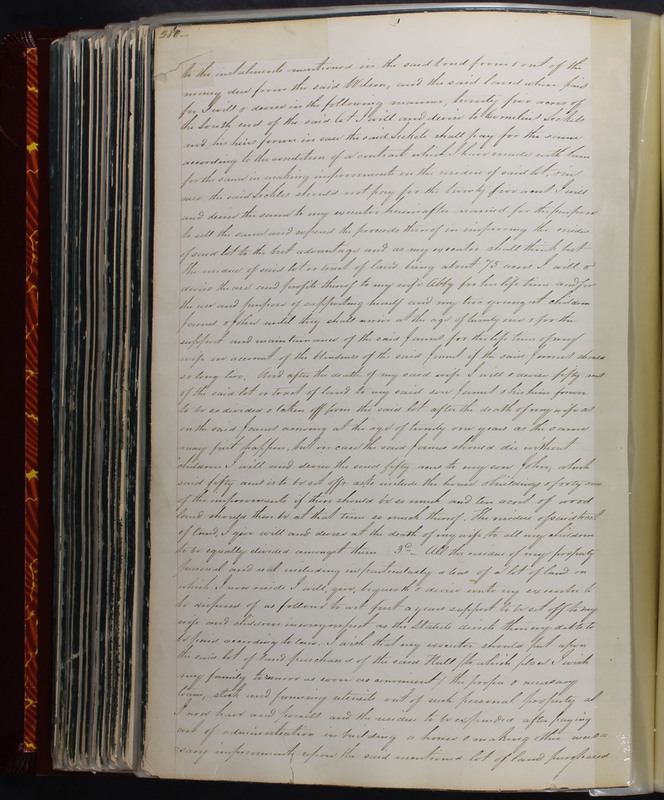 210
to the instalments mentioned in the said bond from & out of the
money due from the said Wilson, and the said land when paid
for, I will & devise in the following manner, twenty five acres of
the South end of the said lot I will and devise to Cornelius Sickels
and his heirs forever in case the said Sickels shall pay for the same
according to the condition of a contract which I have made with him
for the same in making improvements on the residue of said lot, & in
case the said Sickles should not pay for the twenty five acres I will
and devise the same to my executor hereinafter named for the purpose
to sell the same and expend the proceeds thereof in improving the residue
of said lot to the best advantage and as my executor shall think best
The residue of said lot or tract of land being about 75 acres I will &
devise the use and profits thereof to my wife Abby for her life time and for
the use and purpose of supporting herself and my two youngest children
James & John until they shall arrive at the age of twenty one & for the
support and maintainance of the said James for the life time of my
wife on account of the blindness of the said James if the said James should
so long live. And after the death of my said wife I will & devise fifty acres
of the said lot or tract of land to my said son James & his heirs forever
to be so divided & taken off from the said lot after the death of my wife as
on the said James arriving at the age of twenty one years as the same
may first happen, but in case the said James should die without
children I will and devise the said fifty acres to my son John, which
said fifty acres is to be set off so as to include the house & buildings & forty acres
of the improvements if there should be so much and ten acres of wood
land should there be at that time so much thereof. The residue of said tract
of land, I give will and devise at the death of my wife to all my children
to be equally divided amongst them 3d All the residue of my property
personal and real including in particularly a lease of a lot of land on
which I now reside I will, give, bequeath & devise unto my executor to
be disposed of as follows to wit first a years support to be set off to my
wife and children in every respect as the Statute directs then my debts to
be paid according to law. I wish that my executor should put upon
the said lot of land purchased of the said Hall, to which place I wish
my family to remove as soon as convenient, the proper & necessary
team, stock and farming utensils out of such personal property as
I now have and possess and the residue to be expended after paying
cost of administration in building a house & making other neces=
sary improvements upon the said mentioned lot of land purchased